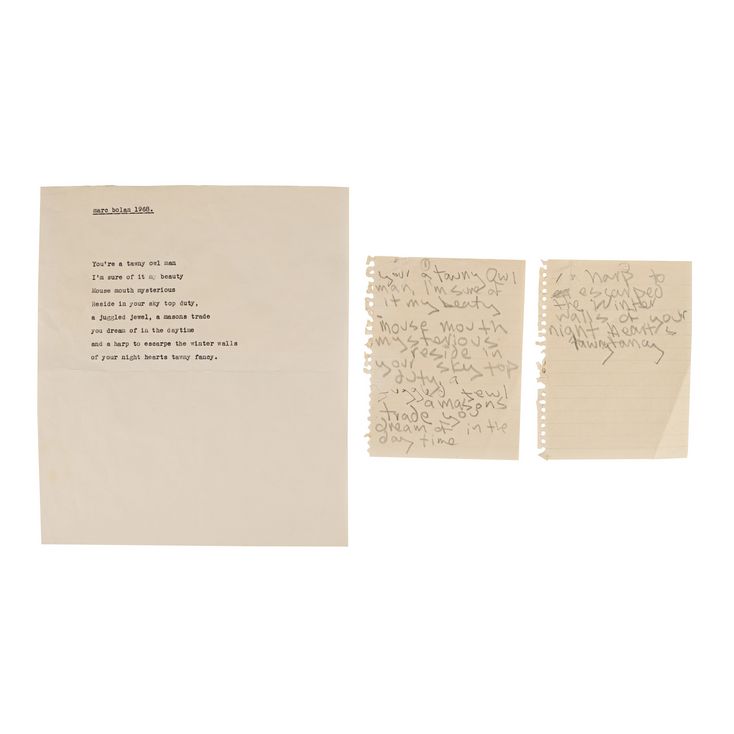 marc bolan 1968.
You're a tawny owl man
I'm sure of it my beauty
Mouse mouth mysterious
Reside in your sky top duty,
a juggled jewel, a masons trade
you dream of in the daytime
and a harp to escarpe the winter walls
of your night hearts tawny fancy.
①
your a tawny owl
man, I'm sure of
it my beaty
mouse mouth
mysterious
reside in
your sky top
duty, a
jewl
a masons
trade you
dream of in the
day time
a harp to
escarped
the winter
walls of your
night hearts
tawny fancy